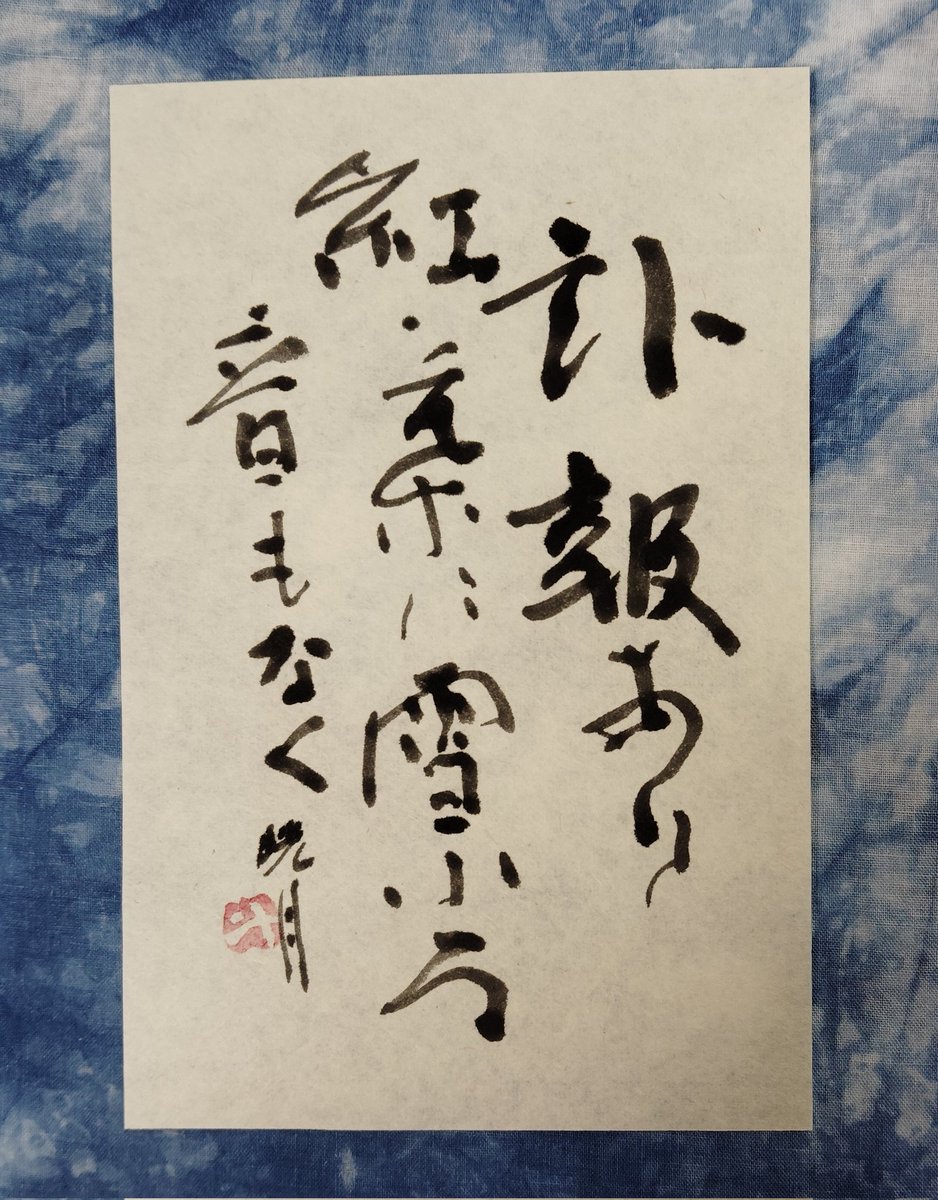 訃報あり
紅葉に雪ふる
音もなく